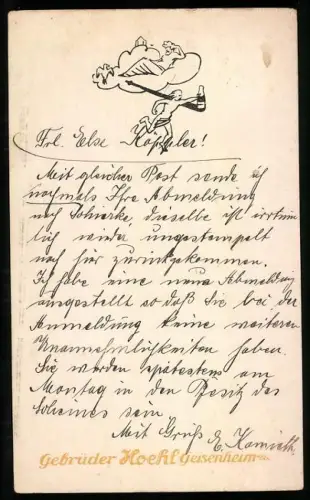 Frl. Else Köhler!
Mit gleicher Post sende ich
nochmals Ihre Abmeldung
nach Schierke, dieselbe ist irrtüm
lich wieder ungestempelt
nach hier zurückgekommen.
Ich habe eine neue Abmeldung
ausgestellt so daß Sie bei der
Anmeldung keine weiteren
Unannehmlichkeiten haben.
Sie werden spätestens am
Montag in den Besitz des
Scheines sein
Mit Gruß E.
Gebrüder Hoehl Geisenheim